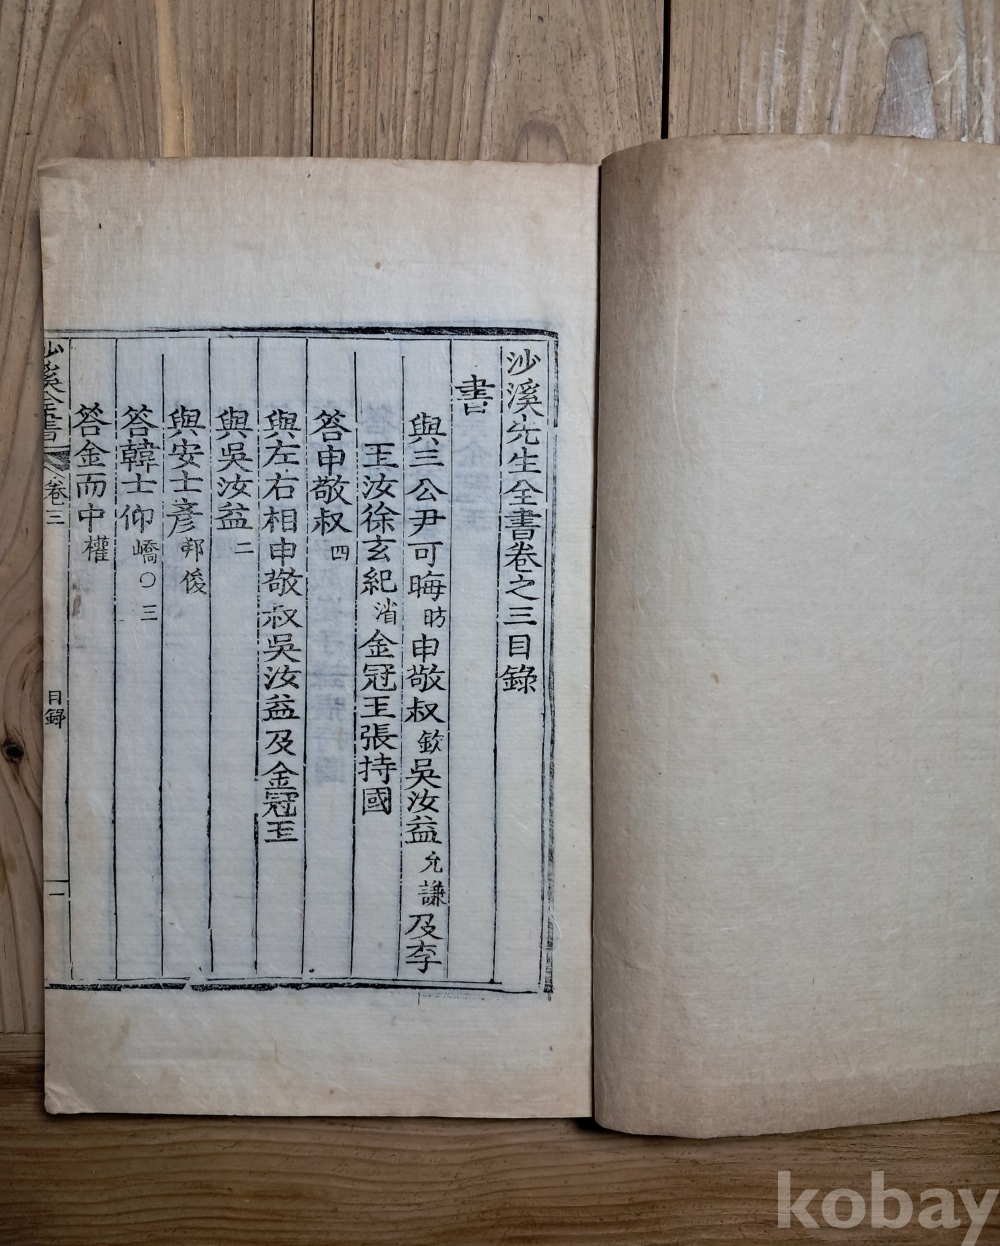 沙溪先生全書卷之三目錄
書
與三公尹可晦昉申敬叔欽吳汝益允謙及李
玉汝徐玄紀渻金冠玉張持國
答申敬叔四
與左右相申敬叔吳汝益及金冠玉
與吳汝益二
與安士彦邦俊
答韓士仰嶠○三
答金而中權
沙溪全書
卷三
目錄
一
kobay